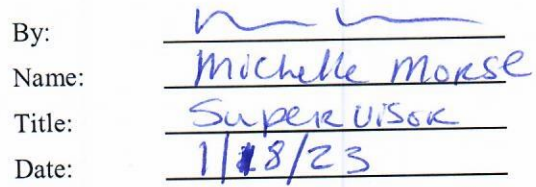 By:
Name: Michelle Morse
Title: Supervisor
Date: 1/18/23